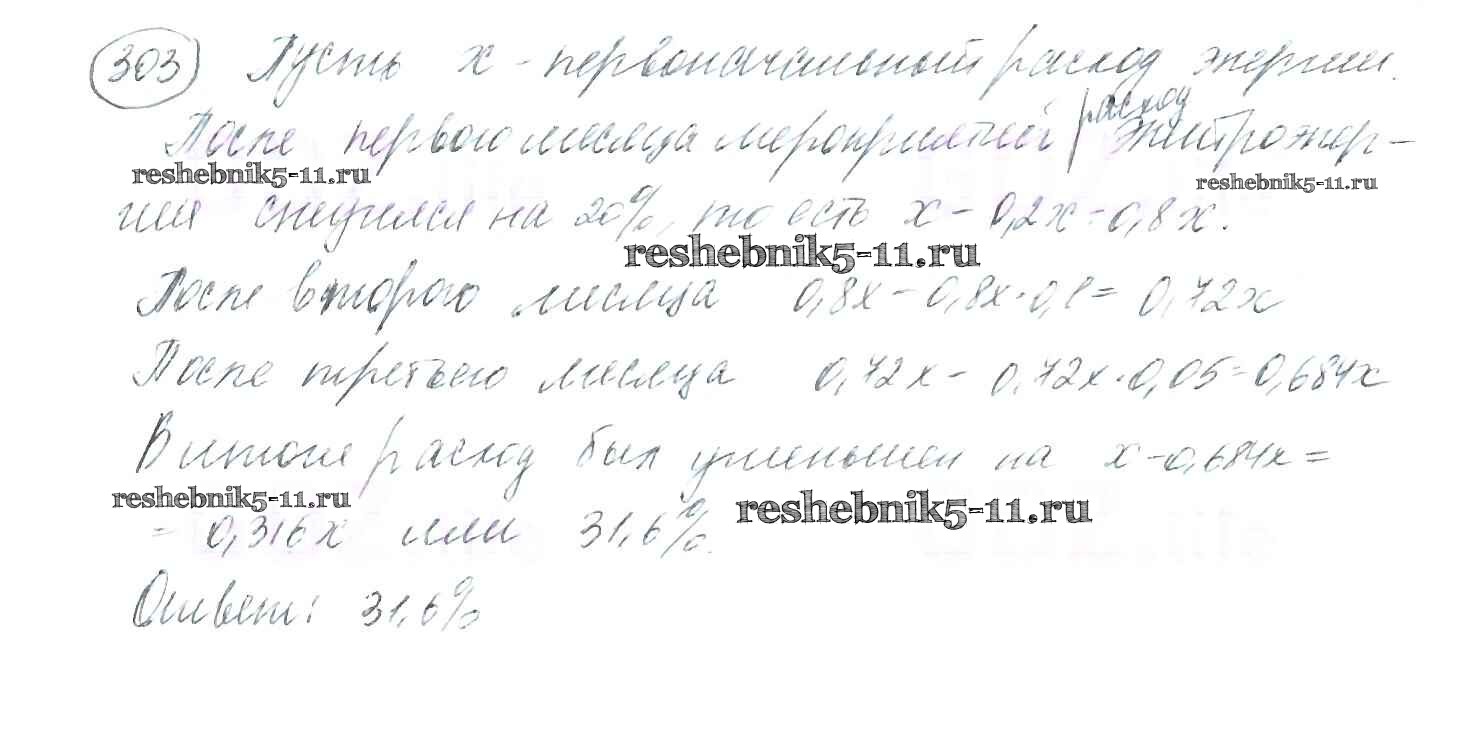 303 Пусть x - первоначальный расход энергии.
расход
После первого месяца мероприятий электроэнер-
reshebnik5-11.ru reshebnik5-11.ru
гии снизился на 20%, то есть x - 0,2x = 0,8x.
reshebnik5-11.ru
После второго месяца 0,8x - 0,8x·0,1 = 0,72x
После третьего месяца 0,72x - 0,72x·0,05 = 0,684x
В итоге расход был уменьшен на x - 0,684x =
reshebnik5-11.ru reshebnik5-11.ru
= 0,316x или 31,6%.
Ответ: 31,6%